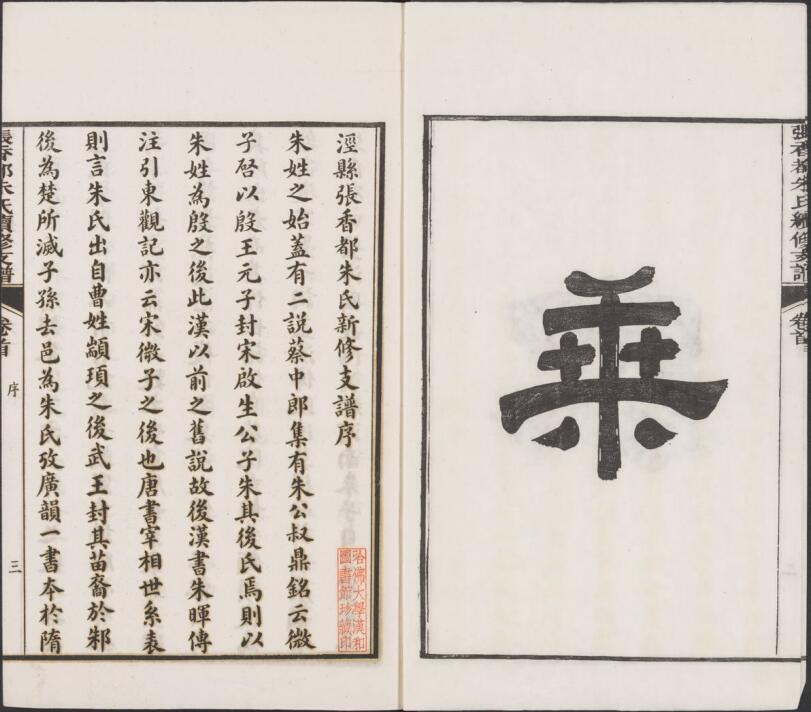 張香都朱氏續修支譜
卷首
乘
涇縣張香都朱氏新修支譜序
朱姓之始蓋有二說蔡中郎集有朱公叔鼎銘云微
子啓以殷王元子封宋啟生公子朱其後氏焉則以
朱姓為殷之後此漢以前之舊說故後漢書朱暉傳
注引東觀記亦云宋微子之後也唐書宰相世系表
則言朱氏出自曹姓顓頊之後武王封其苗裔於邾
後為楚所滅子孫去邑為朱氏攷廣韻一書本於隋
哈佛大學漢和
圖書館珍藏印
張香都朱氏續修支譜
卷首
序
三